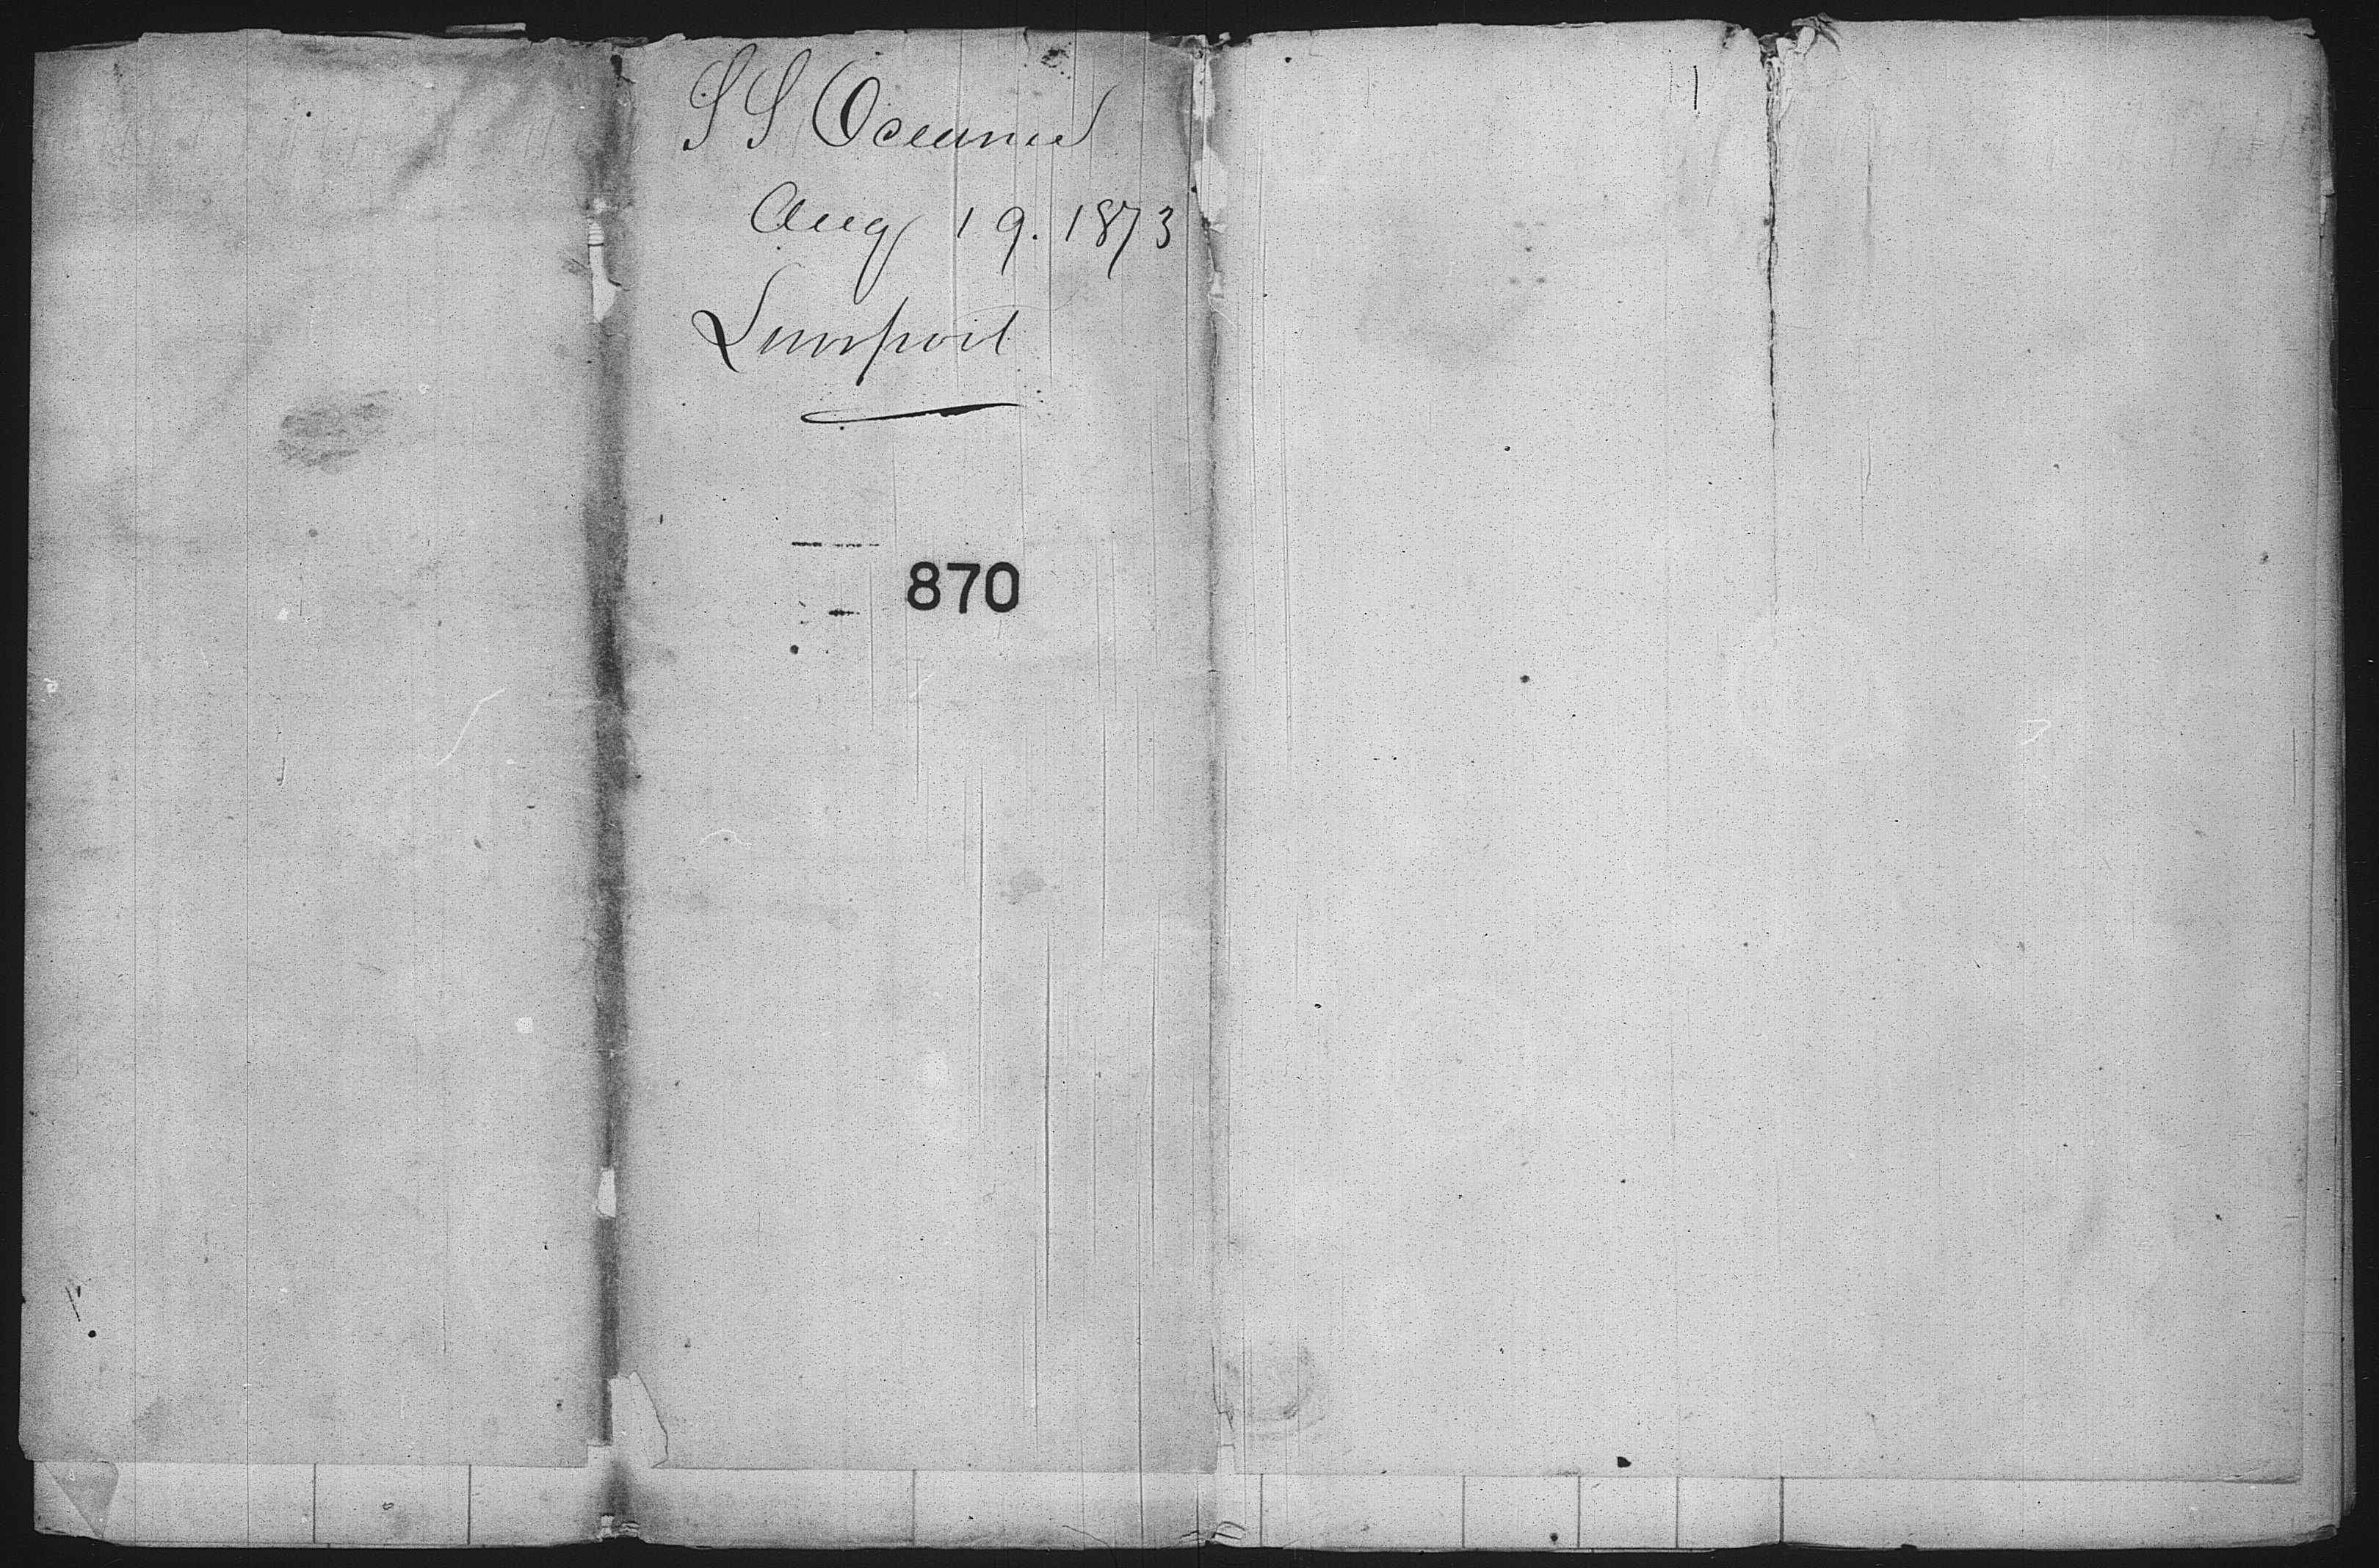 SS Oceanic
Aug 19. 1873
Liverpool
870